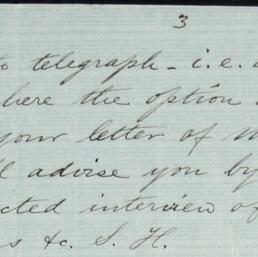 3
to telegraph - i.e.
here the option
your letter of
advise you by
cted interview of
s &c. S. H.